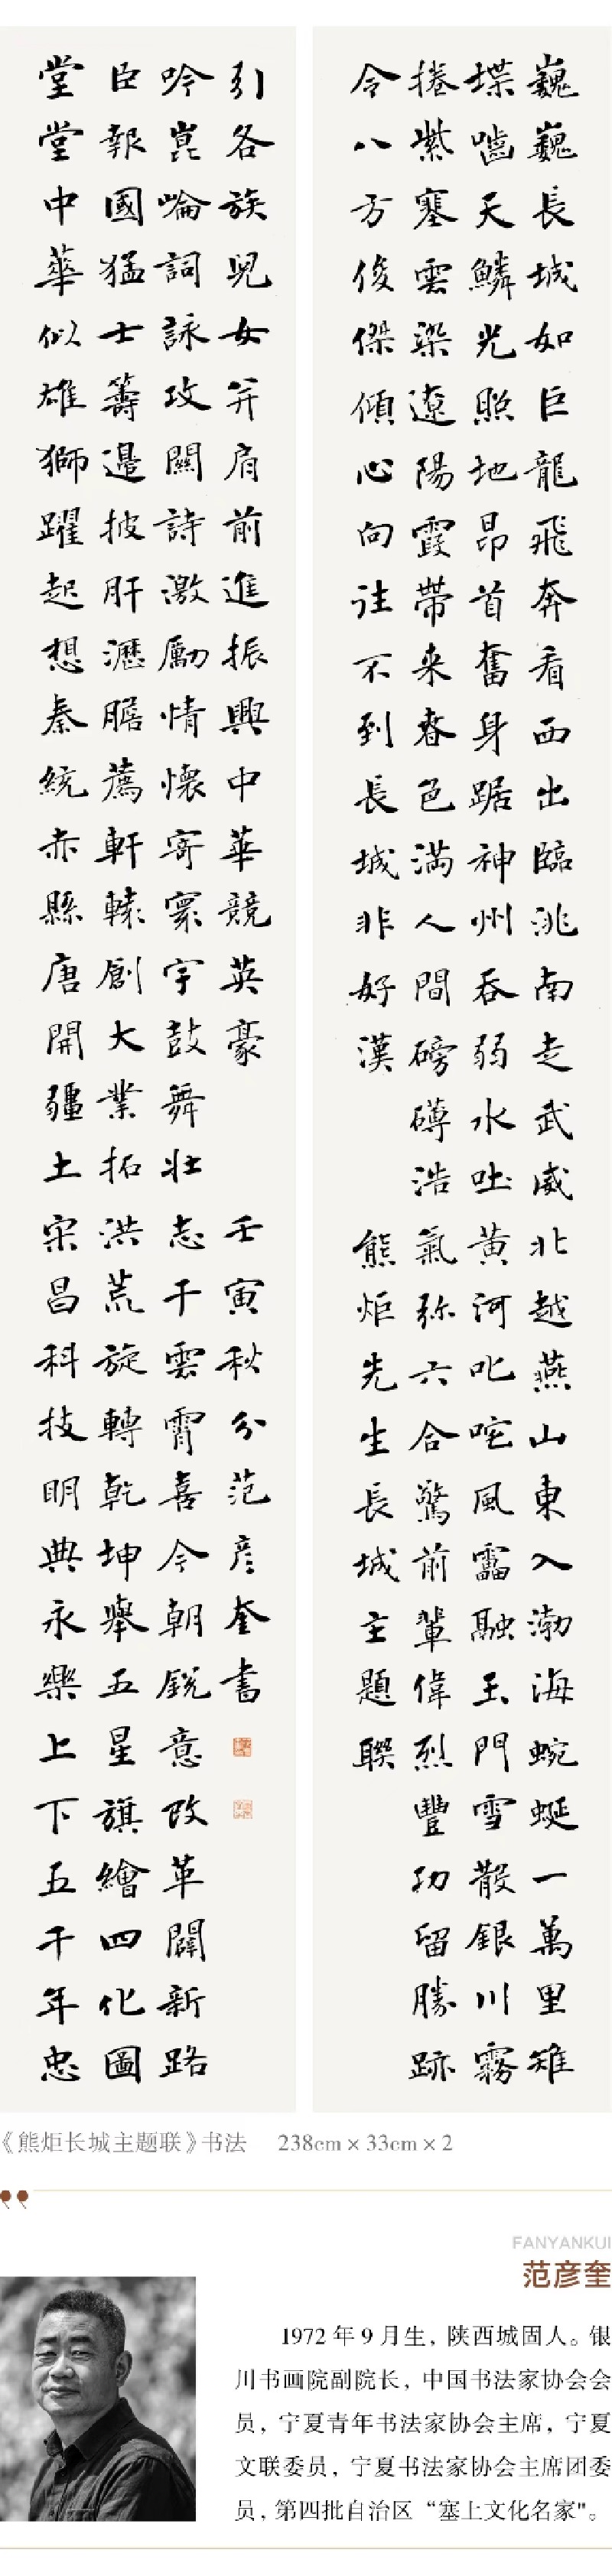 巍巍長城如巨龍飛奔看西出臨洮南走武威北越燕山東入渤海蜿蜒一萬里雉
堞嚙天鱗光照地昂首奮身踞神州吞弱水吐黄河叱咤風靁融玉門雪散銀川霧
捲紫塞雲染遼陽霞帶来春色滿人間磅礴浩氣弥六合驚前輩偉烈豐功留勝跡
令八方俊傑傾心向往不到長城非好漢
熊炬先生長城主題聯
堂堂中華似雄獅躍起想秦統赤縣唐開疆土宋昌科技明典永樂上下五千年忠
臣報國猛士籌邊披肝瀝膽薦軒轅創大業拓洪荒旋轉乾坤舉五星旗繪四化圖
吟崑崙詞詠攻關詩激勵情懷寄寰宇鼓舞壯志干雲霄喜今朝銳意改革闢新路
引各族兒女并肩前進振興中華競英豪
壬寅秋分范彦奎書
《熊炬长城主题联》书法 238cm×33cm×2
FANYANKUI
范彦奎
1972年9月生，陕西城固人。银
川书画院副院长，中国书法家协会会
员，宁夏青年书法家协会主席，宁夏
文联委员，宁夏书法家协会主席团委
员，第四批自治区“塞上文化名家"。